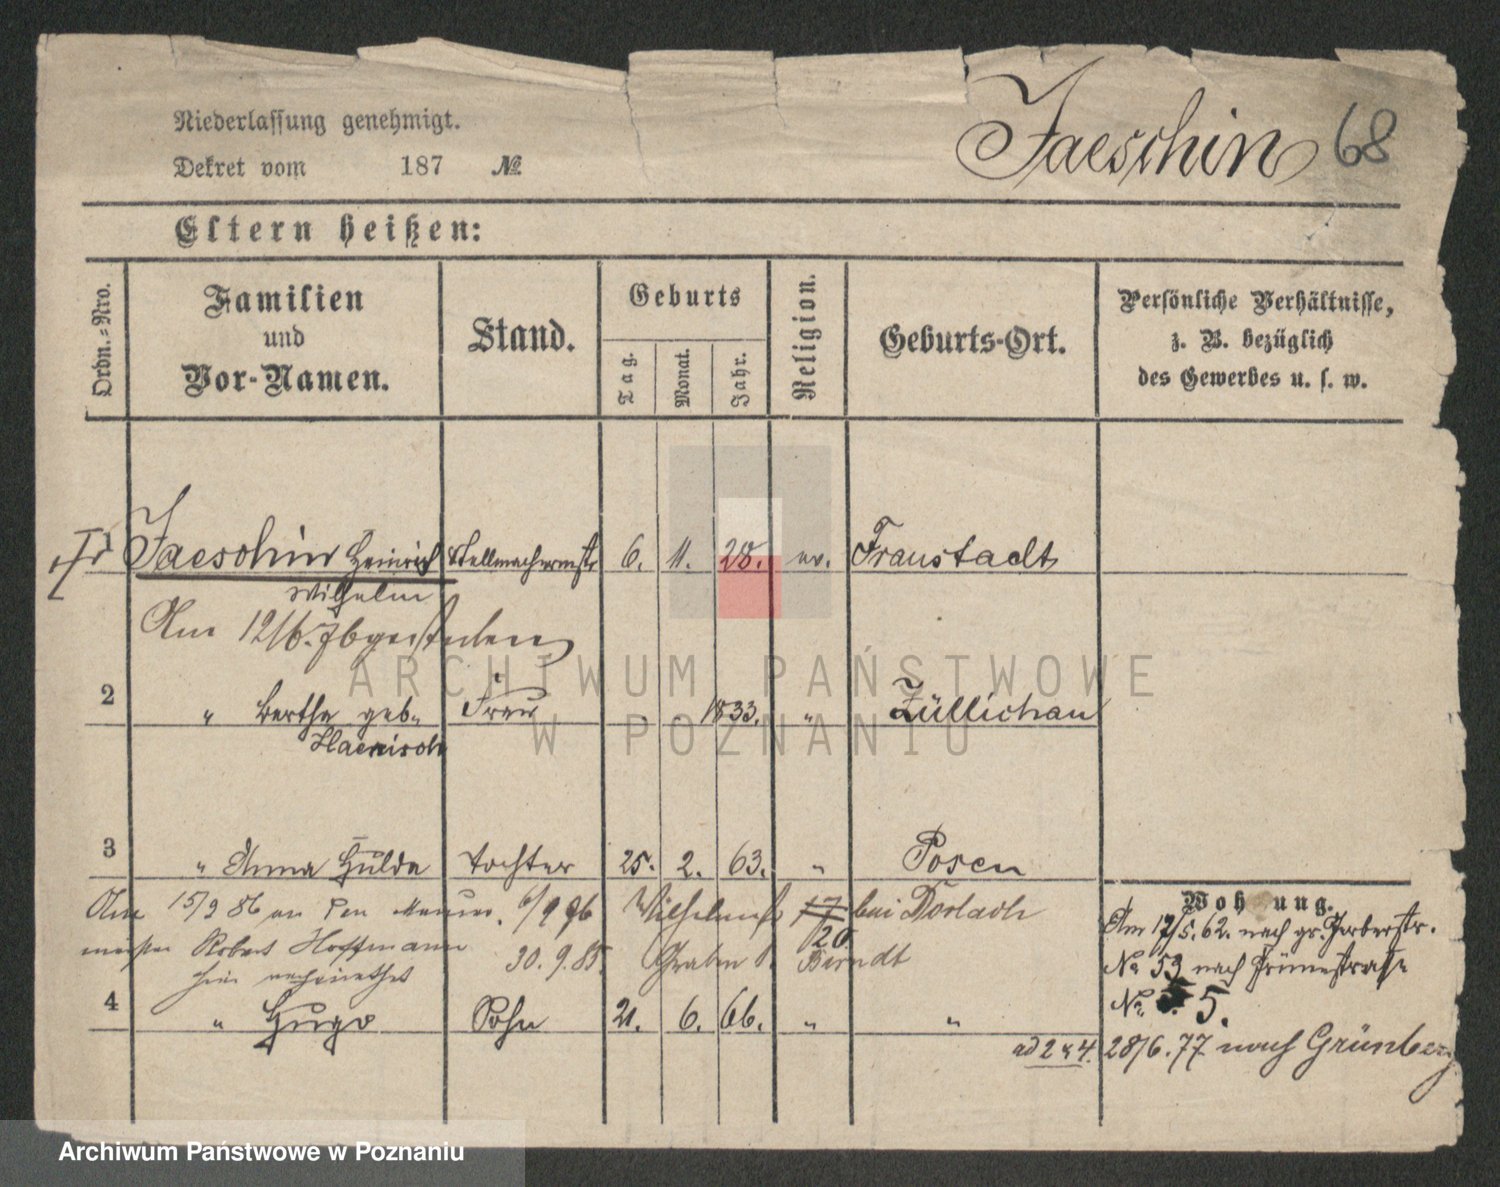 Niederlassung genehmigt.
Dekret vom 187 №
Jaeschin 68
Eltern heißen:
Ordn.-Nro.
Familien und Vor-Namen.
Stand.
Geburts
Tag. Monat. Jahr.
Religion.
Geburts-Ort.
Persönliche Verhältnisse, z. B. bezüglich des Gewerbes u. s. w.
1 Jaeschin Heinrich Stellmachermstr 6. 11. 28. ev. Fraustadt
Wilhelm
Am 12/6. 76 gestorben
2 " Bertha geb. Frau 1833. " Züllichau
Haenisch
3 " Anna Hulda Tochter 25. 2. 63. " Posen
Am 15/9 86 an den Maurer 6/9 76 Wilhelmst 17 bei Dorlach
20
meister Robert Hoffmann 30. 9. 85. Graben Berndt
hier verheirathet
4 " Hugo Sohn 21. 6. 66. " "
Wohnung.
Am 12/5. 62. nach gr. Gerberstr.
No 53 nach Grünestrasse
No. 5.
ad 2 u 4. 28/6. 77 nach Grünberg
ARCHIWUM PAŃSTWOWE
W POZNANIU
Archiwum Państwowe w Poznaniu